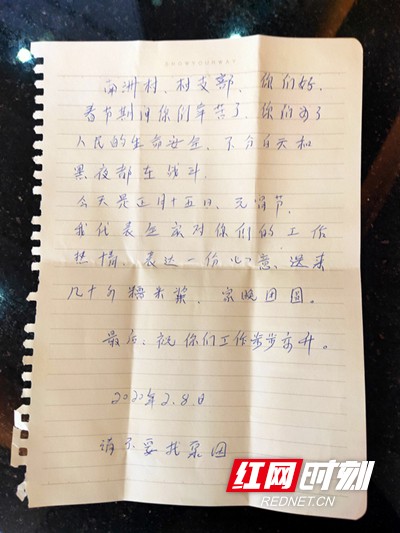 南洲村、村支部、你们好,
春节期间你们辛苦了、你们为了
人民的生命安全、不分白天和
黑夜都在战斗.
今天是正月十五日、元宵节,
我代表全家对你们的工作
热情、表达一份心意、送来
几十斤糯米浆、家晚团圆。
最后、祝你们工作步步高升。
2020年2.8.日
请不要找原因
红网时刻
REDNET.CN